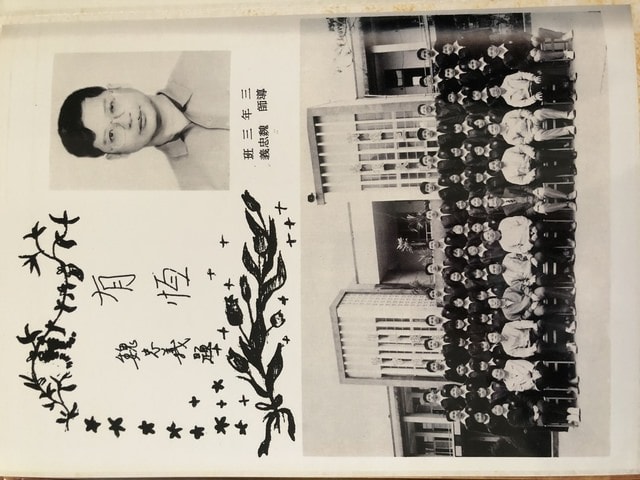 三年三班
導師 魏忠義
有恆
魏忠義題